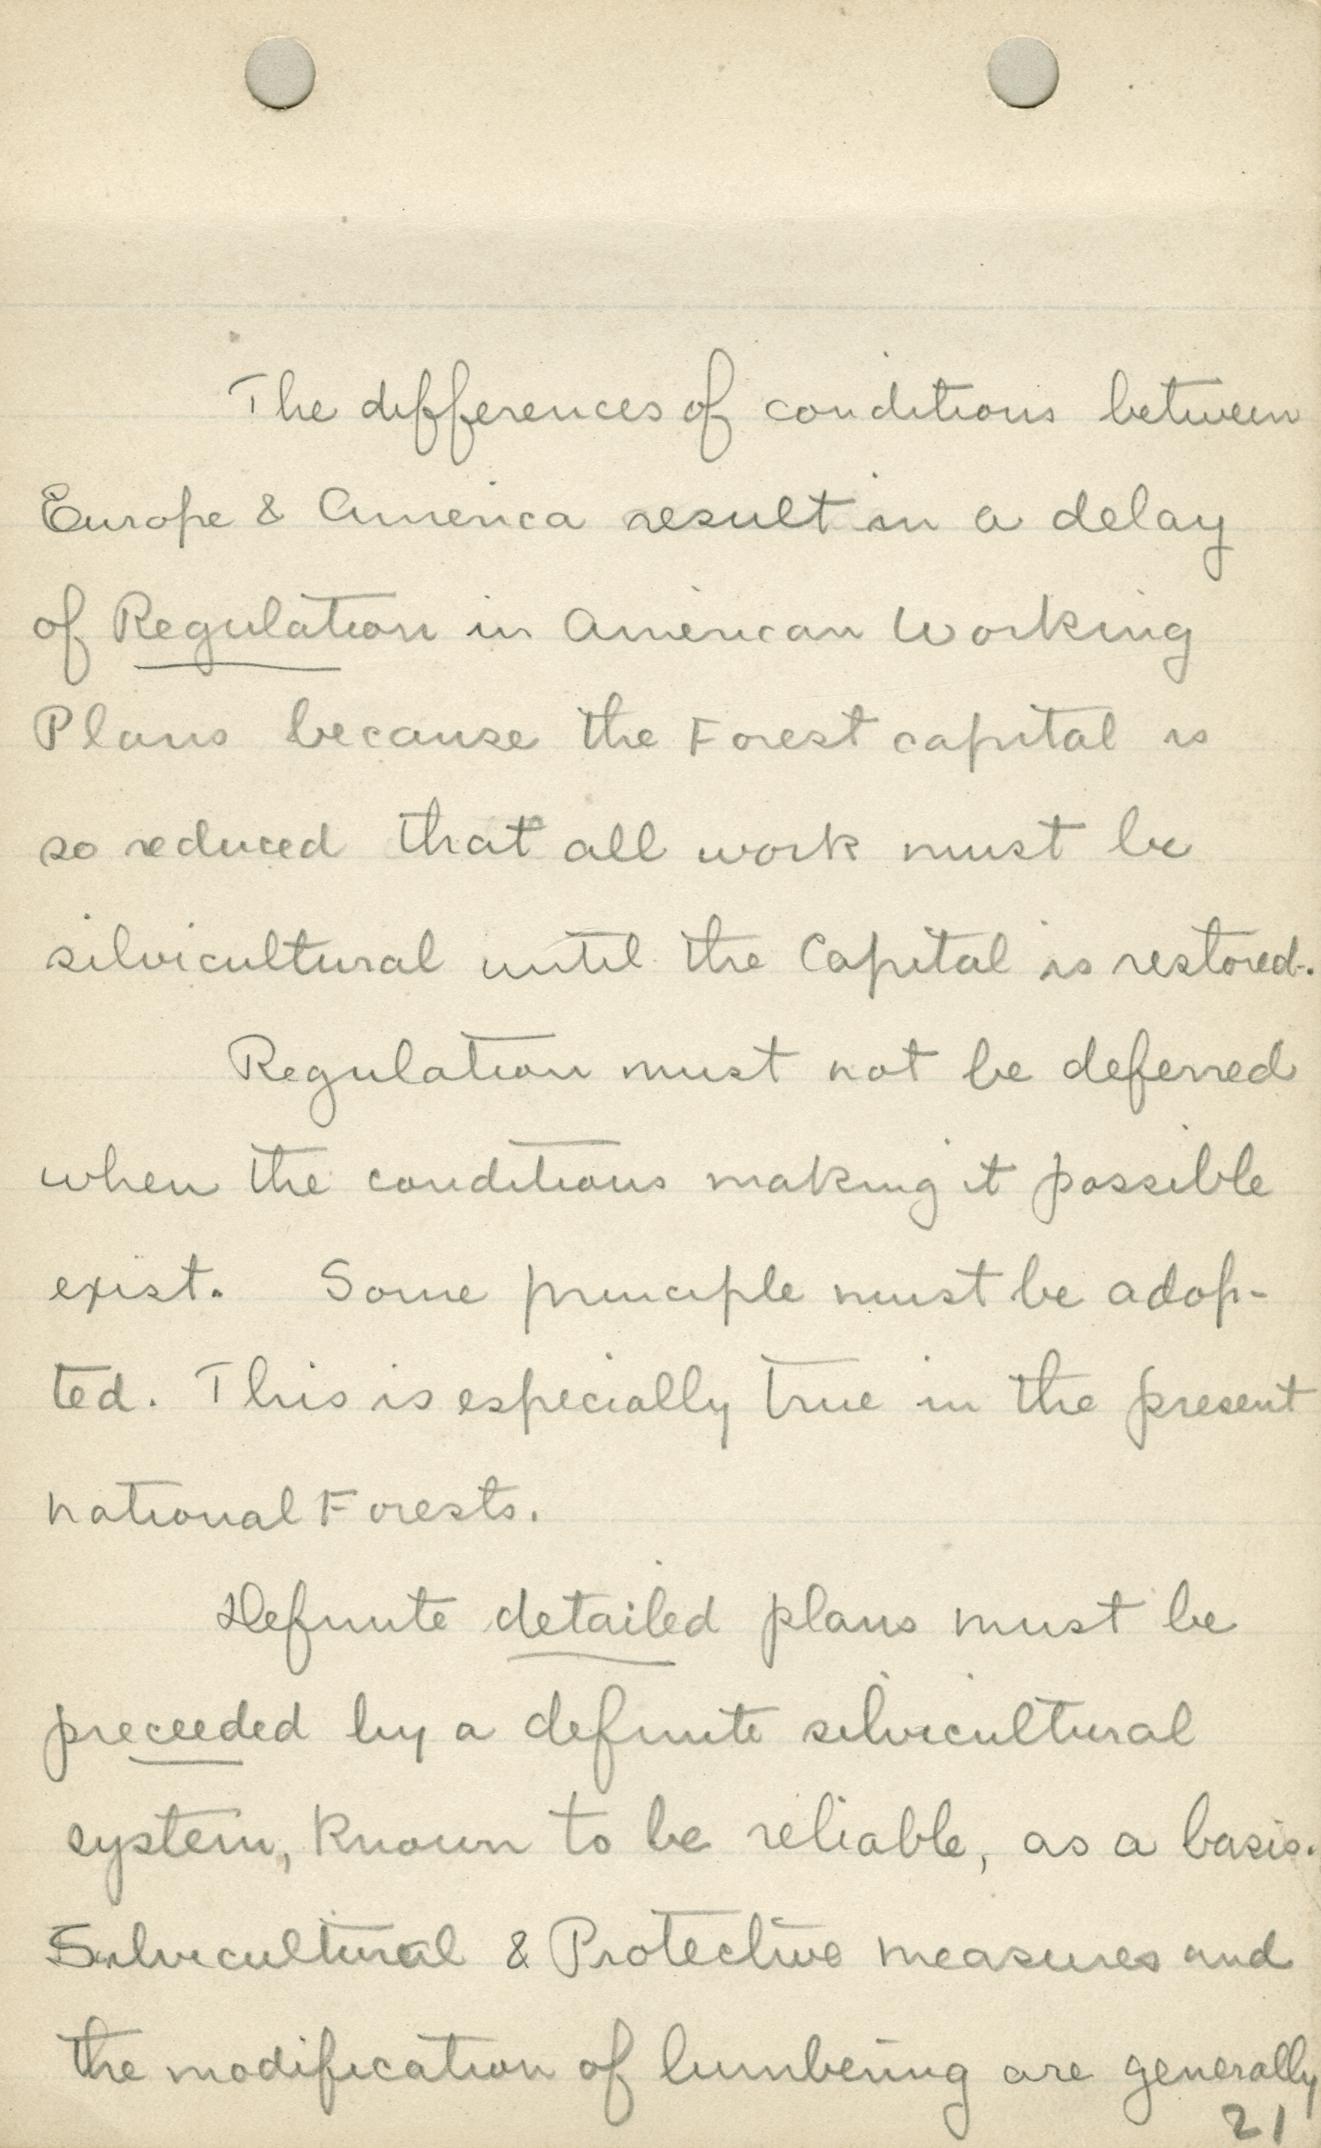 The differences of conditions between
Europe & America result in a delay
of Regulation in American Working
Plans because the Forest capital is
so reduced that all work must be
silvicultural until the Capital is restored.
Regulation must not be deferred
when the conditions making it possible
exist. Some principle must be adop-
ted. This is especially true in the present
national Forests.
Definite detailed plans must be
preceeded by a definite silvicultural
system, known to be reliable, as a basis.
Silvicultural & Protective measures and
the modification of lumbering are generally
21